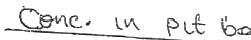 Conc. in put bo